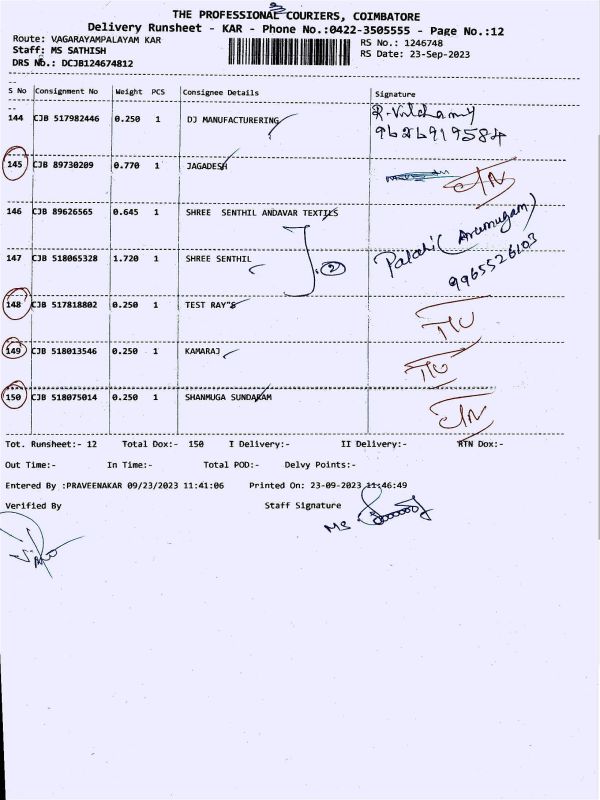 THE PROFESSIONAL COURIERS, COIMBATORE
Delivery Runsheet - KAR - Phone No.:0422-3505555 - Page No.:12
Route: VAGARAYAMPALAYAM KAR
RS No.: 1246748
Staff: MS SATHISH
RS Date: 23-Sep-2023
DRS No.: DCJB124674812
S No Consignment No Weight PCS Consignee Details Signature
144 CJB 517982446 0.250 1 DJ MANUFACTURERING
9626919584
145 CJB 89730209 0.770 1 JAGADESH
146 CJB 89626565 0.645 1 SHREE SENTHIL ANDAVAR TEXTILS
Palani (Arumugam)
147 CJB 518065328 1.720 1 SHREE SENTHIL 2
9965526103
148 CJB 517818802 0.250 1 TEST RAY"S
149 CJB 518013546 0.250 1 KAMARAJ
150 CJB 518075014 0.250 1 SHANMUGA SUNDARAM
Tot. Runsheet:- 12 Total Dox:- 150 I Delivery:- II Delivery:- RTN Dox:-
Out Time:- In Time:- Total POD:- Delvy Points:-
Entered By :PRAVEENAKAR 09/23/2023 11:41:06 Printed On: 23-09-2023 11:46:49
Verified By Staff Signature
MS